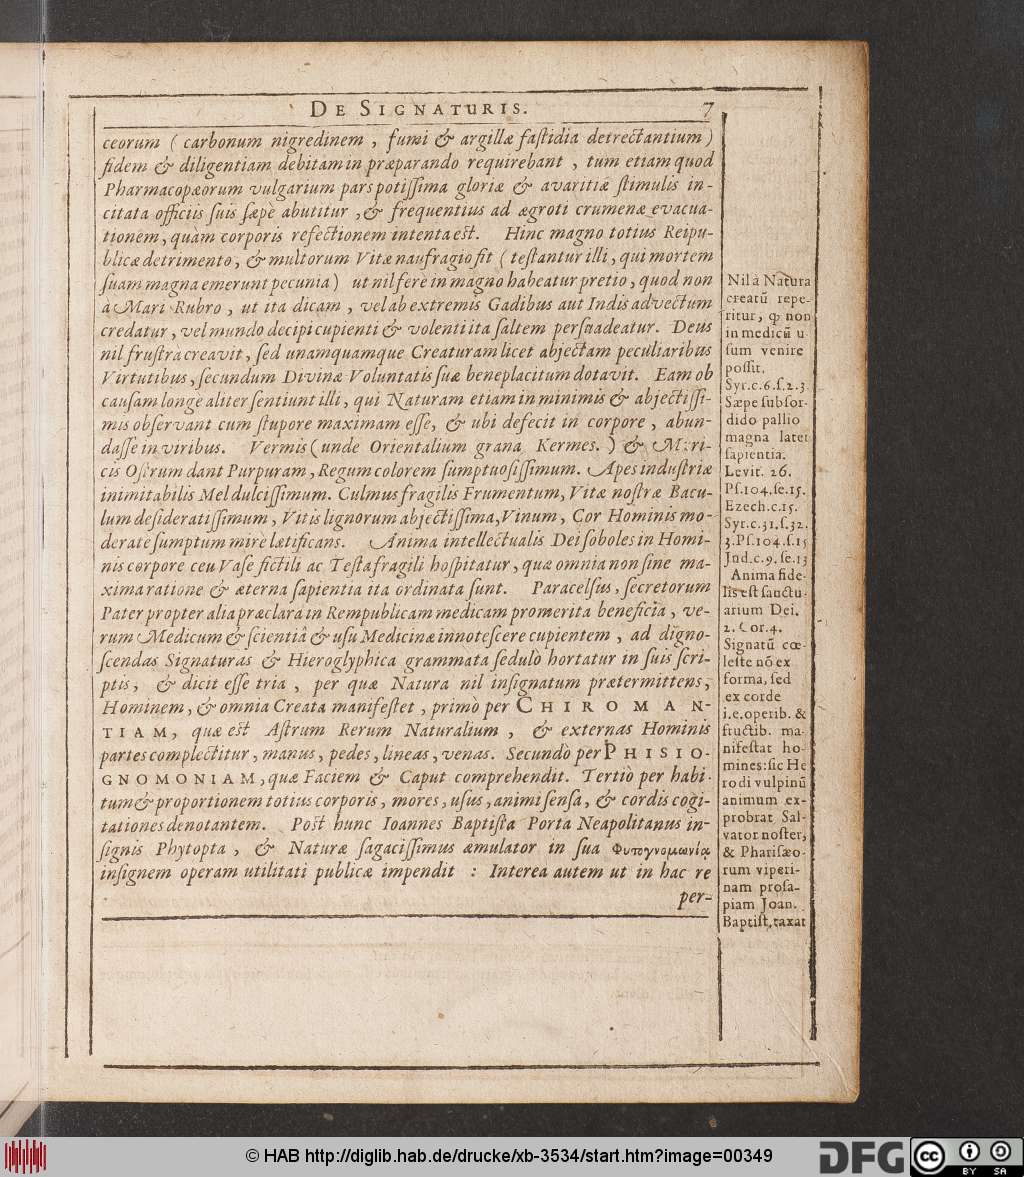 DE SIGNATURIS. 7
ceorum ( carbonum nigredinem , fumi & argillæ faſtidia detrectantium )
fidem & diligentiam debitam in præparando requirebant , tum etiam quod
Pharmacopæorum vulgarium pars potiſſima gloriæ & avaritiæ ſtimulis in-
citata officiis ſuis ſæpè abutitur , & frequentius ad ægroti crumenæ evacua-
tionem, quàm corporis refectionem intenta eſt. Hinc magno totius Reipu-
blicæ detrimento, & multorum Vitæ naufragio fit ( teſtantur illi, qui mortem
ſuam magna emerunt pecunia ) ut nil ferè in magno habeatur pretio, quod non
à Mari Rubro , ut ita dicam , vel ab extremis Gadibus aut Indis advectum
credatur , vel mundo decipi cupienti & volenti ita ſaltem perſuadeatur. Deus
nil fruſtrà creavit , ſed unamquamque Creaturam licet abjectam peculiaribus
Virtutibus, ſecundum Divinæ Voluntatis ſuæ beneplacitum dotavit. Eam ob
cauſam longe aliter ſentiunt illi , qui Naturam etiam in minimis & abjectiſſi-
mis obſervant cum ſtupore maximam eſſe, & ubi defecit in corpore , abun-
daſſe in viribus. Vermis ( unde Orientalium grana Kermes. ) & Muri-
cis Oſtrum dant Purpuram, Regum colorem ſumptuoſiſſimum. Apes induſtriæ
inimitabilis Mel dulciſſimum. Culmus fragilis Frumentum, Vitæ noſtræ Bacu-
lum deſideratiſſimum , Vitis lignorum abjectiſſima, Vinum, Cor Hominis mo-
derate ſumptum mire lætificans. Anima intellectualis Dei ſoboles in Homi-
nis corpore ceu Vaſe fictili ac Teſta fragili hoſpitatur, quæ omnia non ſine ma-
xima ratione & æterna ſapientia ita ordinata ſunt. Paracelſus, ſecretorum
Pater propter alia præclara in Rempublicam medicam promerita beneficia , ve-
rum Medicum & ſcientiâ & uſu Medicinæ innoteſcere cupientem , ad digno-
ſcendas Signaturas & Hieroglyphica grammata ſedulò hortatur in ſuis ſcri-
ptis, & dicit eſſe tria , per quæ Natura nil inſignatum prætermittens,
Hominem, & omnia Creata manifeſtet , primò per CHIROMAN-
TIAM, quæ eſt Aſtrum Rerum Naturalium , & externas Hominis
partes complectitur, manus, pedes, lineas, venas. Secundò per PHISIO-
GNOMONIAM, quæ Faciem & Caput comprehendit. Tertiò per habi-
tum & proportionem totius corporis, mores, uſus, animi ſenſa, & cordis cogi-
tationes denotantem. Poſt hunc Ioannes Baptiſta Porta Neapolitanus in-
ſignis Phytopta , & Naturæ ſagaciſſimus æmulator in ſua Φυτογνομωνίᾳ
inſignem operam utilitati publicæ impendit : Interea autem ut in hac re
per-
Nil à Natura
creatū repe-
ritur, ꝙ non
in medicū u-
ſum venire
poſſit.
Syr.c.6.ſ.2.3.
Sæpe ſub ſor-
dido pallio
magna latet
ſapientia.
Levit. 26.
Pſ.104.ſe.15.
Ezech.c.15.
Syr.c.31.ſ.32.
3.Pſ.104.ſ.15
Jnd.c.9.ſe.13
Anima fide-
lis eſt ſanctu-
arium Dei.
2. Cor.4.
Signatū cœ-
leſte nō ex
forma, ſed
ex corde
i.e.operib. &
fructib. ma-
nifeſtat ho-
mines: ſic He
rodi vulpinū
animum ex-
probrat Sal-
vator noſter,
& Phariſæo-
rum viperi-
nam proſa-
piam Joan.
Baptiſt, taxat
© HAB http://diglib.hab.de/drucke/xb-3534/start.htm?image=00349
DFG
cc BY SA